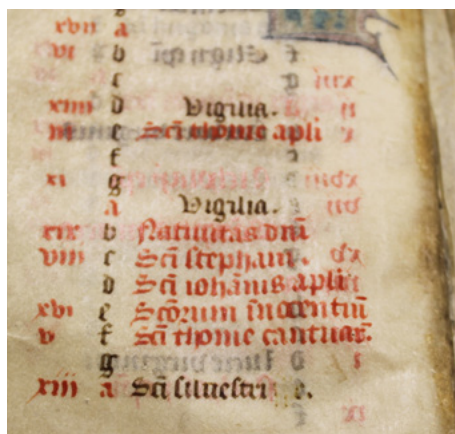 b
xvii a
vi b
c
xiiii d Vigilia.
iii e Sc̄i thome apli
f
xi g
a Vigilia.
xix b Natiuitas dn̄i
viii c Sc̄i stephani.
d Sc̄i ioh̄anis apli
xvi e Sc̄orum
v f Sc̄i thome cantuar.
g
xiii a Sc̄i siluestri